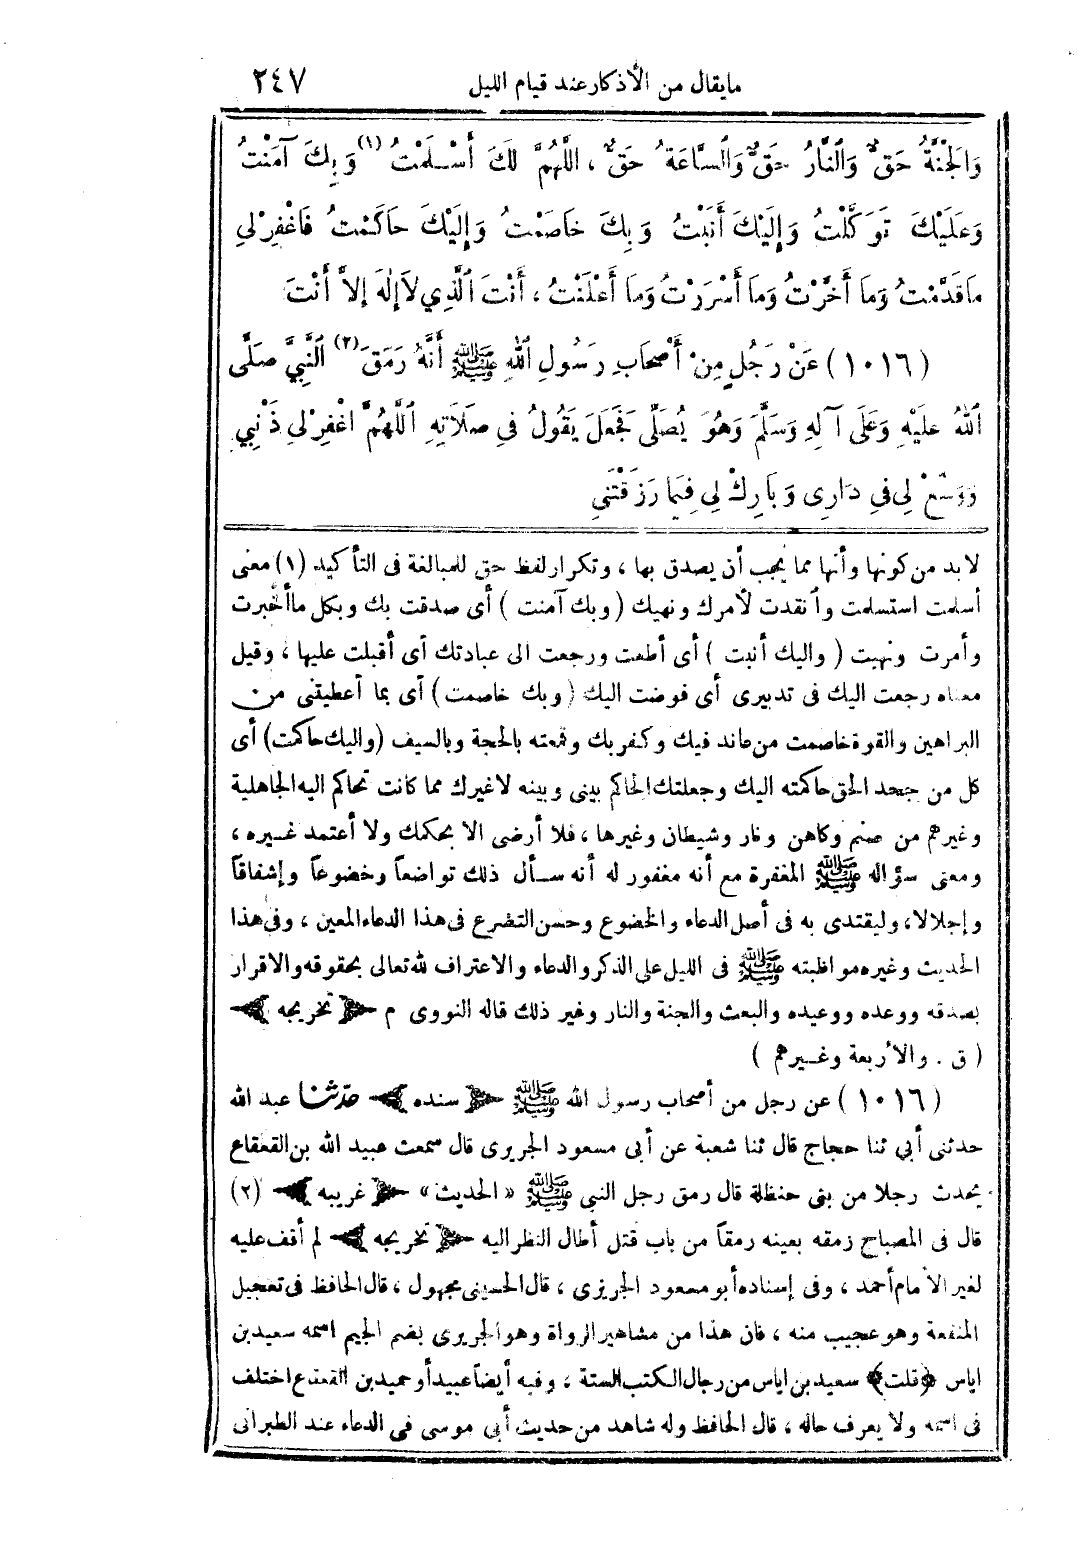 مايقال من الأذكار عند قيام الليل ٢٤٧
وَالْجَنَّةُ حَقٌّ وَالنَّارُ حَقٌّ وَالسَّاعَةُ حَقٌّ ، اللَّهُمَّ لَكَ أَسْلَمْتُ (١) وَبِكَ آمَنْتُ
وَعَلَيْكَ تَوَكَّلْتُ وَإِلَيْكَ أَنَبْتُ وَبِكَ خَاصَمْتُ وَإِلَيْكَ حَاكَمْتُ فَاغْفِرْلِي
مَاقَدَّمْتُ وَمَا أَخَّرْتُ وَمَا أَسْرَرْتُ وَمَا أَعْلَنْتُ ، أَنْتَ الَّذِي لاَ إِلَهَ إِلاَّ أَنْتَ
(١٠١٦) عَنْ رَجُلٍ مِنْ أَصْحَابِ رَسُولِ اللهِ ﷺ أَنَّهُ رَمَقَ (٢) النَّبِيَّ صَلَّى
اللهُ عَلَيْهِ وَعَلَى آلِهِ وَسَلَّمَ وَهُوَ يُصَلِّى فَجَعَلَ يَقُولُ فِي صَلَاتِهِ اللَّهُمَّ اغْفِرْ لِي ذَنْبِي
وَوَسِّعْ لِي فِي دَارِى وَبَارِكْ لِي فِيمَا رَزَقْتَنِي
لابد من كونها وأنها مما يجب أن يصدق بها ، وتكرار لفظ حق للمبالغة فى التأكيد (١) معنى
أسلمت استسلمت وانقدت لأمرك ونهيك (وبك آمنت) أى صدقت بك وبكل ماأخبرت
وأمرت ونهيت (واليك أنبت) أى أطعت ورجعت الى عبادتك أى أقبلت عليها ، وقيل
معناه رجعت اليك فى تدبيرى أى فوضت اليك (وبك خاصمت) أى بما أعطيتنى من
البراهين والقوة خاصمت من عاند فيك وكفر بك وقمعته بالحجة وبالسيف (واليك حاكمت) أى
كل من جحد الحق حاكمته اليك وجعلتك الحاكم بينى وبينه لاغيرك مما كانت تحاكم اليه الجاهلية
وغيرهم من صنم وكاهن ونار وشيطان وغيرها ، فلا أرضى الا بحكمك ولا أعتمد غيره ،
ومعنى سؤاله ﷺ المغفرة مع أنه مغفور له أنه سأل ذلك تواضعاً وخضوعاً وإشفاقاً
وإجلالا ، وليقتدى به فى أصل الدعاء والخضوع وحسن التضرع فى هذا الدعاء المعين ، وفى هذا
الحديث وغيره مواظبته ﷺ فى الليل على الذكر والدعاء والاعتراف لله تعالى بحقوقه والاقرار
بصدقه ووعده ووعيده والبعث والجنة والنار وغير ذلك قاله النووى م ﴿ تخريجه ﴾
(ق . والأربعة وغيرهم)
(١٠١٦) عن رجل من أصحاب رسول الله ﷺ ﴿ سنده ﴾ حدّثنا عبد الله
حدثنى أبي ثنا حجاج قال ثنا شعبة عن أبى مسعود الجريرى قال سمعت عبيد الله بن القعقاع
يحدث رجلا من بنى حنظلة قال رمق رجل النبى ﷺ «الحديث» ﴿ غريبه ﴾ (٢)
قال فى المصباح رمقه بعينه رمقاً من باب قتل أطال النظر اليه ﴿ تخريجه ﴾ لم أقف عليه
لغير الأمام أحمد ، وفى إسناده أبو مسعود الجريرى ، قال الحسينى مجهول ، قال الحافظ فى تعجيل
المنفعة وهو عجيب منه ، فان هذا من مشاهير الرواة وهو الجريرى بضم الجيم اسمه سعيد بن
اياس ﴿قلت﴾ سعيد بن اياس من رجال الكتب الستة ، وفيه أيضاً عبيد أو حميد بن القعقاع اختلف
فى اسمه ولا يعرف حاله ، قال الحافظ وله شاهد من حديث أبى موسى فى الدعاء عند الطبرانى